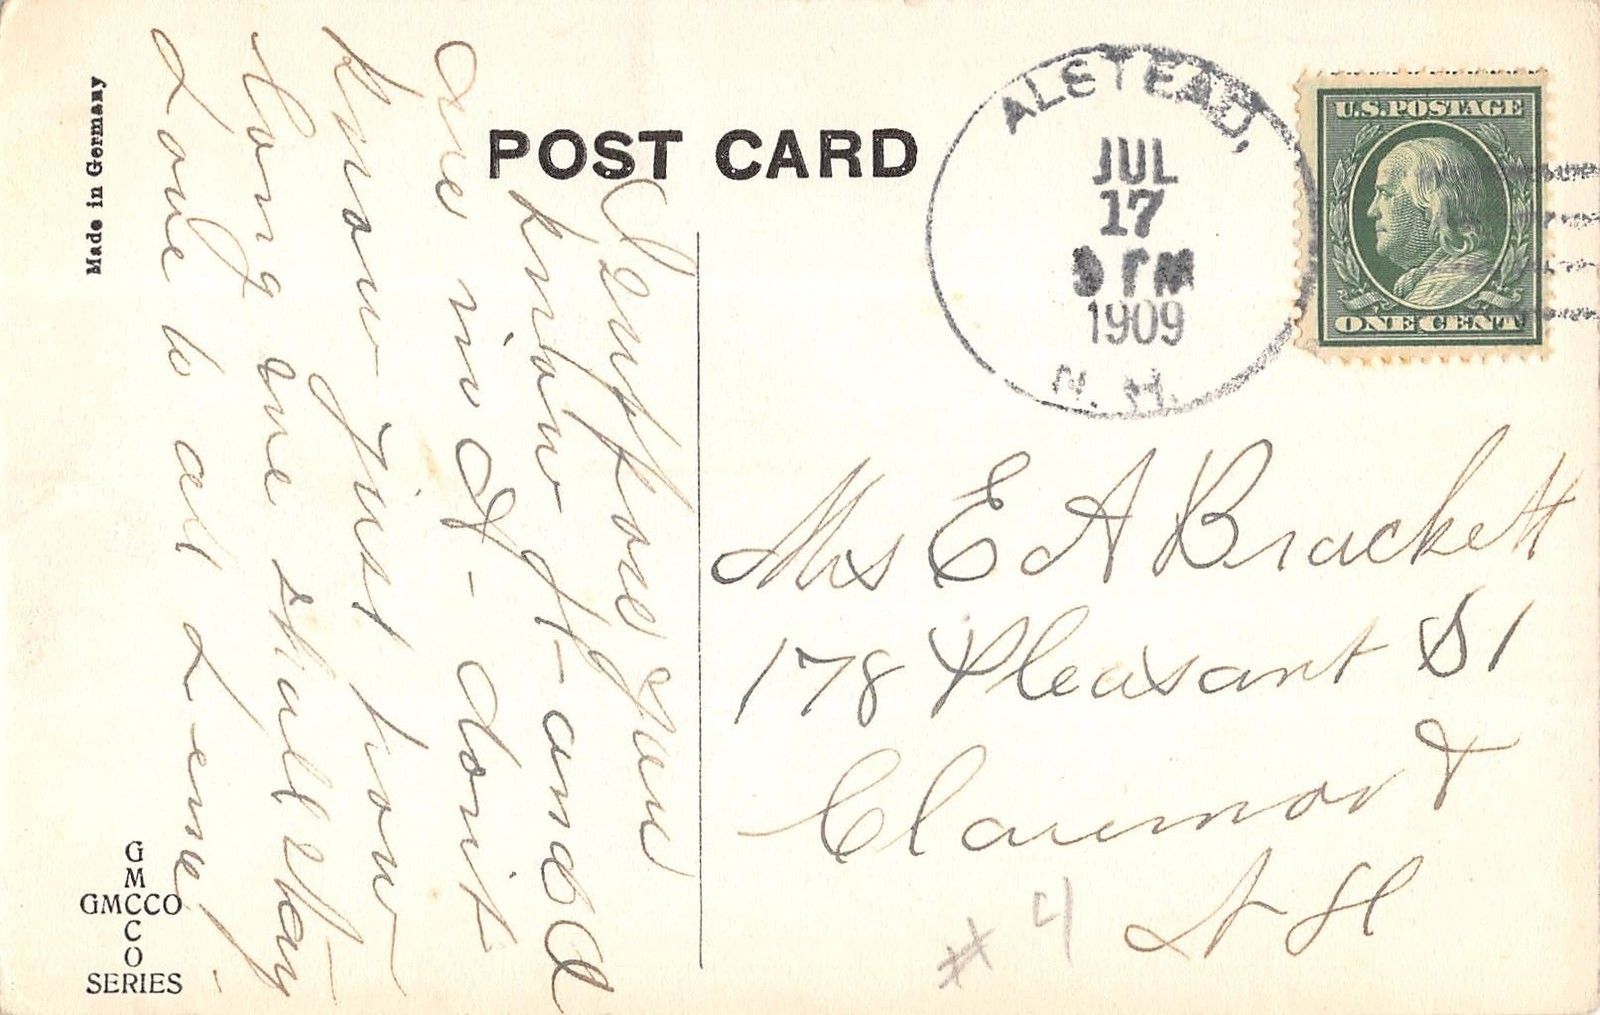 POST CARD
Made in Germany
ALSTEAD,
JUL
17
PM
1909
N. H.
U.S. POSTAGE
ONE CENT
I suppose you
know H- and I
are in A- don't
know just how
long we shall stay-
Love to all Lena
Mrs E A Brackett
178 Pleasant St
Claremont
N H
# 4
GMCCO
GMCCO
SERIES